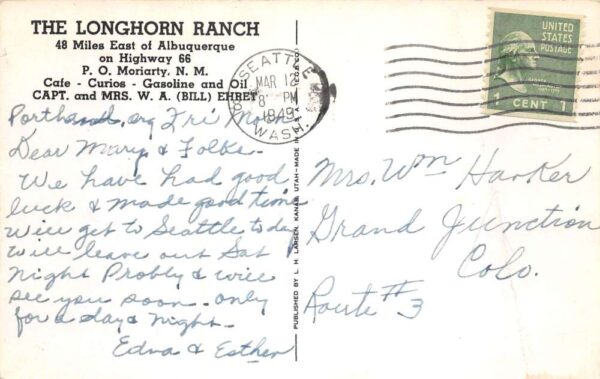 THE LONGHORN RANCH
48 Miles East of Albuquerque
on Highway 66
P. O. Moriarty, N. M.
Cafe - Curios - Gasoline and Oil
CAPT. and MRS. W. A. (BILL) EHRET
SEATTLE
MAR 12
8 PM
1949
WASH.
UNITED
STATES
POSTAGE
1 CENT 1
Portland, Fri Morn
Dear Mary & Folks-
We have had good
luck & made good time
will get to Seattle today
will leave out Sat
night Probly & will
see you soon. only
for a day & night-
Edna & Esther
PUBLISHED BY L. H. LARSEN, KANAB, UTAH - MADE IN U.S.A.
Mrs. Wm Harker
Grand Junction
Colo.
Route #3